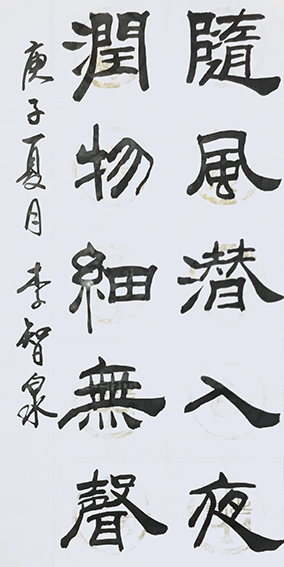 隨風潜入夜
潤物細無聲
庚子夏月 李智泉